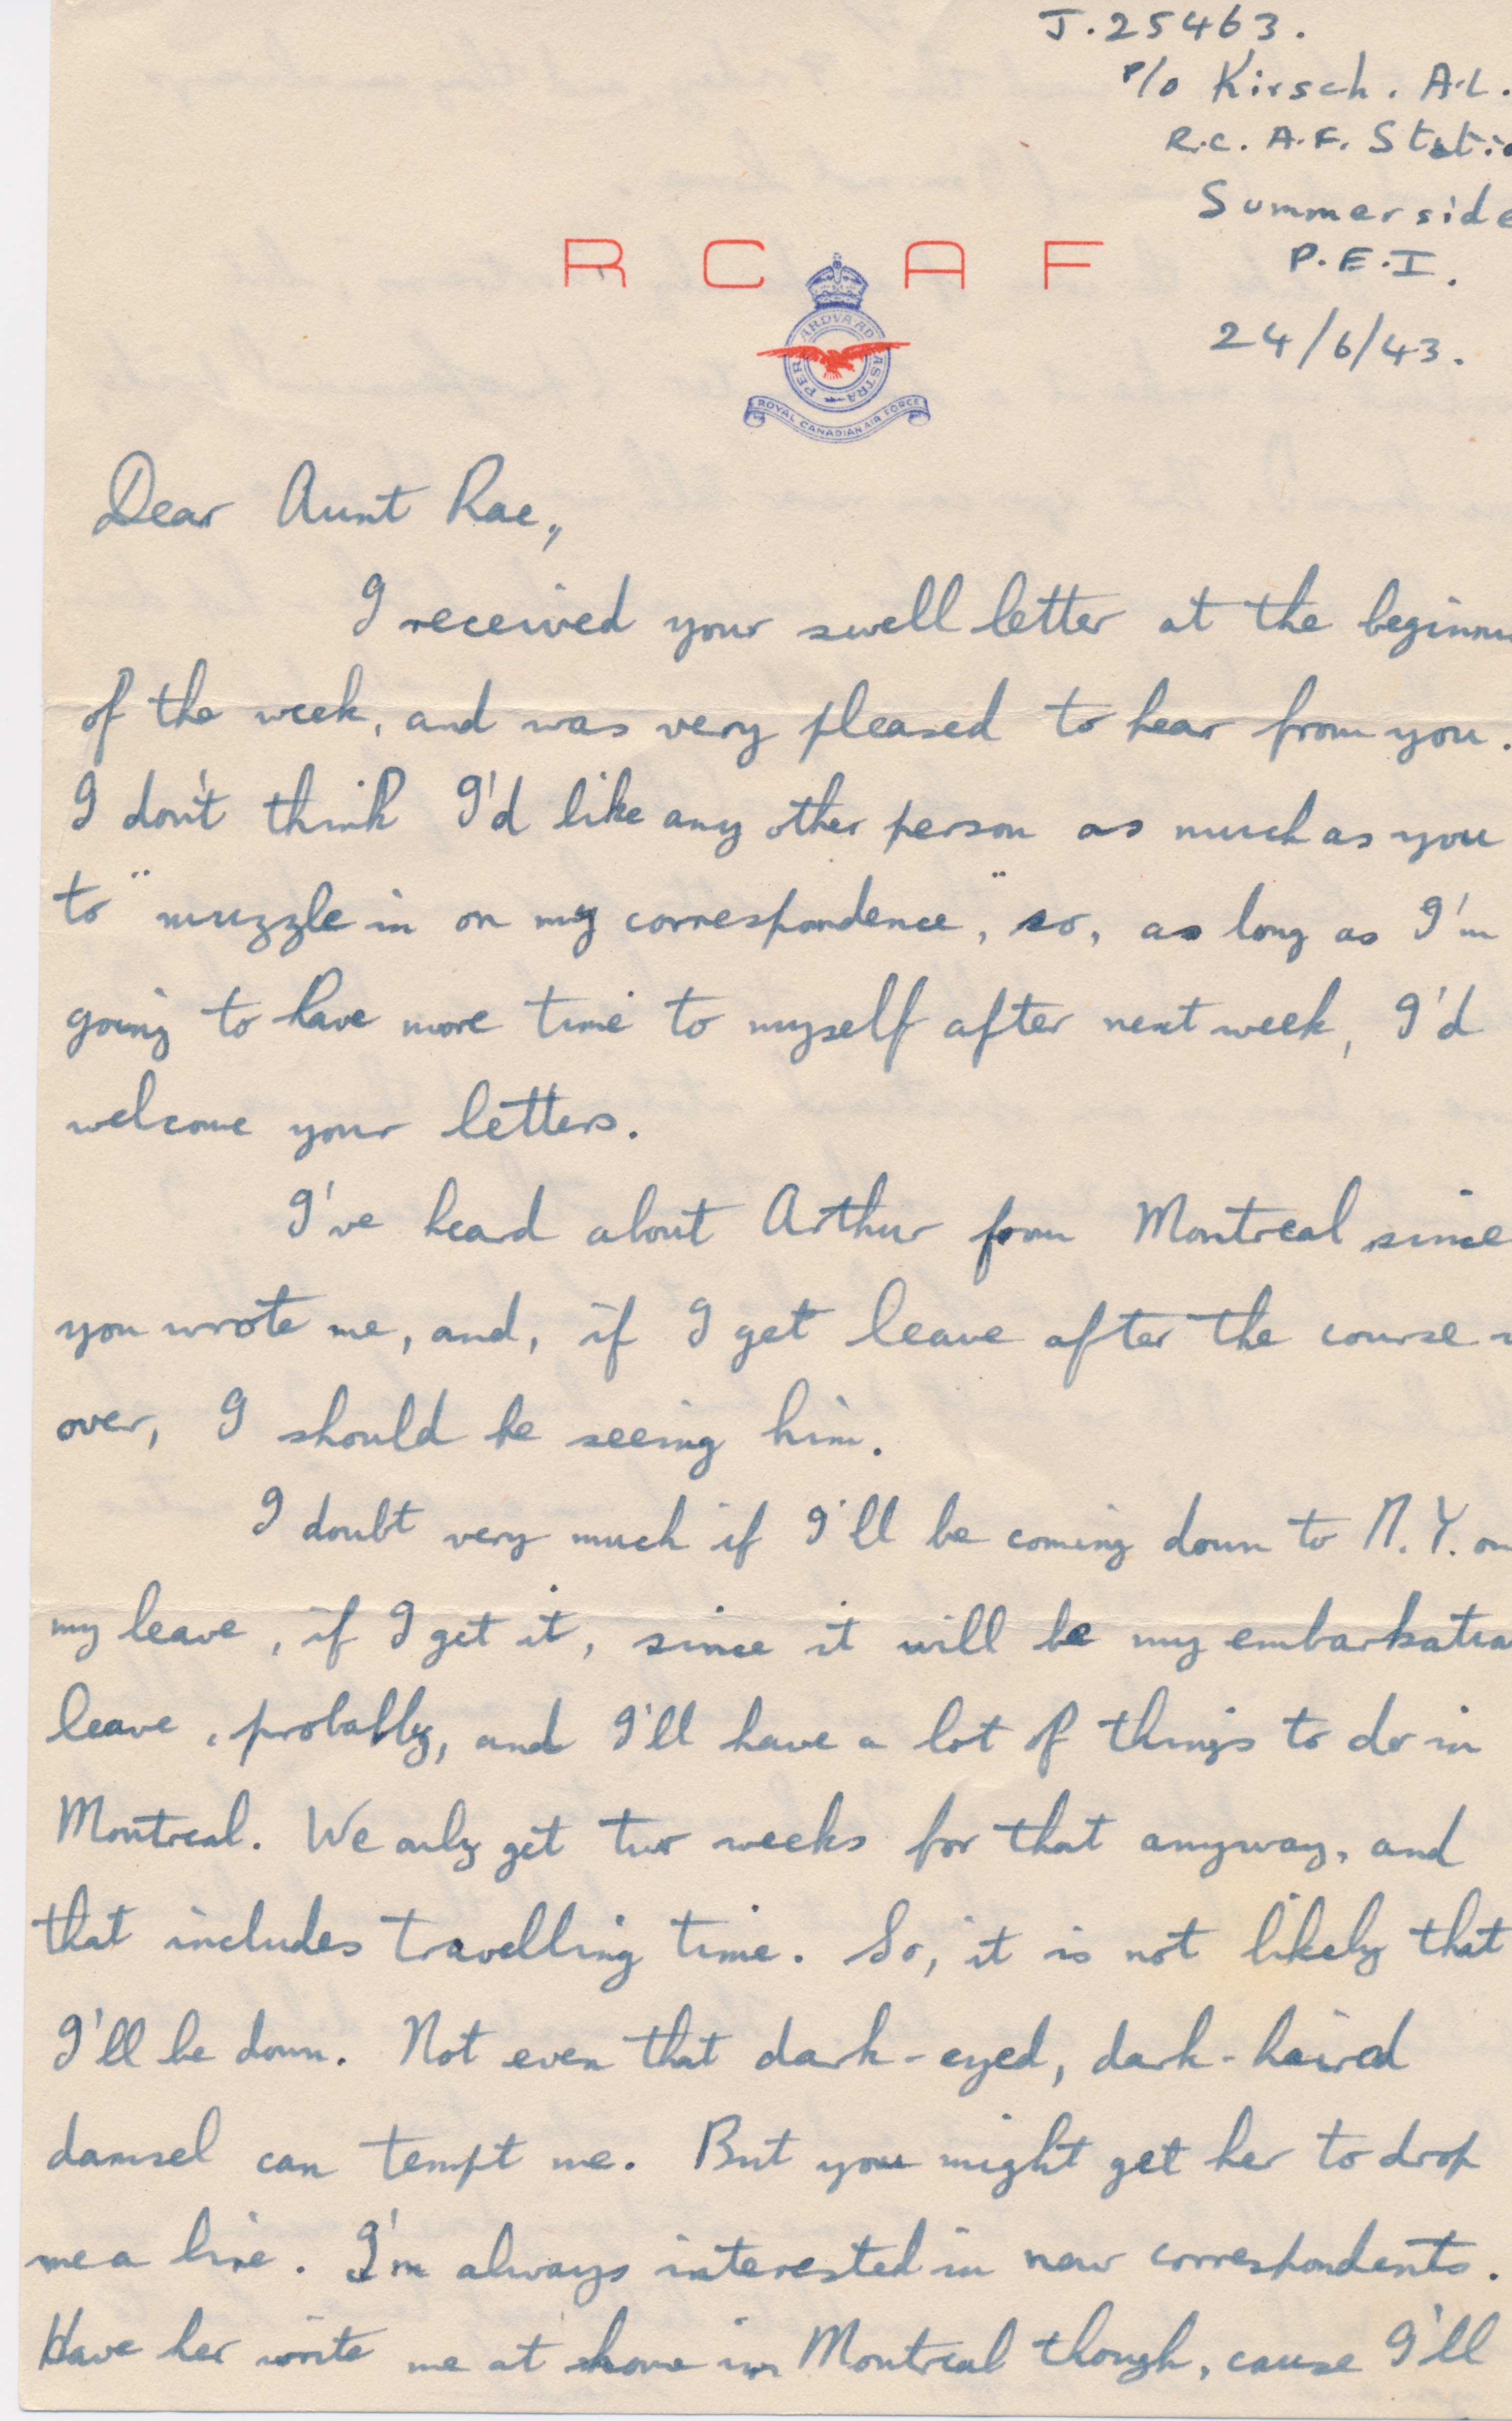 J.25463.
P/O Kirsch. A.L.
R.C.A.F. Statio
Summerside
P.E.I.
24/6/43.
R C A F
PER ARDVA AD ASTRA
ROYAL CANADIAN AIR FORCE
Dear Aunt Rae,,
I received your swell letter at the beginni
of the week, and was very pleased to hear from you.
I don't think I'd like any other person as much as you
to "muzzle in on my correspondence", so, as long as I'm
going to have more time to myself after next week, I'd
welcome your letters.
I've heard about Arthur from Montreal since
you wrote me, and, if I get leave after the course
over, I should be seeing him.
I doubt very much if I'll be coming down to N.Y. on
my leave, if I get it, since it will be my embarkatio
leave, probably, and I'll have a lot of things to do in
Montreal. We only get two weeks for that anyway, and
that includes travelling time. So, it is not likely that
I'll be down. Not even that dark-eyed, dark-haired
damsel can tempt me. But you might get her to drop
me a line. I'm always interested in new correspondents.
Have her write me at home in Montreal though, cause I'll